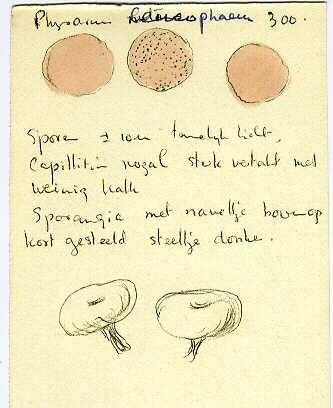 Physarum phaeum 300.
Sporen ± 10 u tamelijk licht.
Capillitium nogal sterk vertakt met
weinig kalk
Sporangia met naveltje bovenop
kort gesteeld steeltje donker.